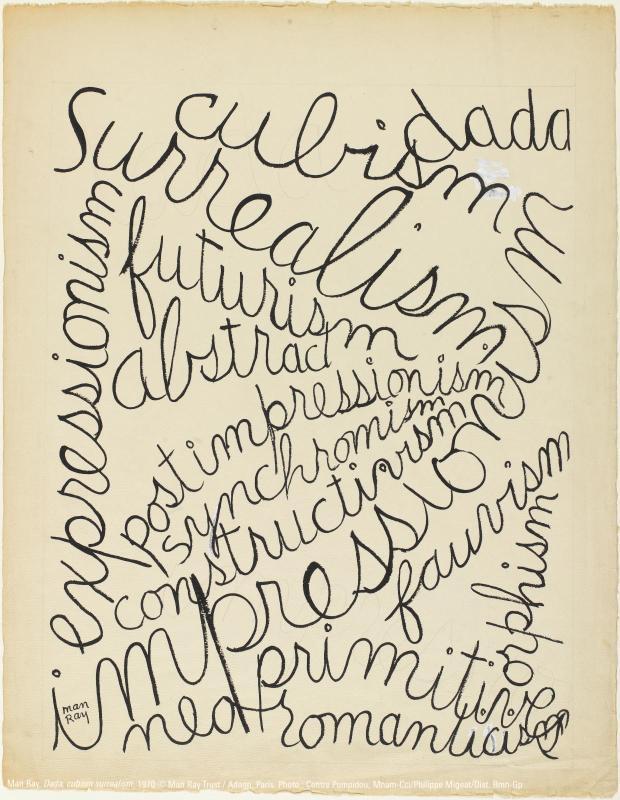 cubism
dada
Surrealism
expressionism
futurism
abstract
postimpressionism
synchromism
constructivism
impressionism
fauvism
orphism
primitivism
neo romanticism
man
Ray
Man Ray, Dada, cubism surrealism, 1970 © Man Ray Trust / Adagp, Paris. Photo : Centre Pompidou, Mnam-Cci/Philippe Migeat/Dist. Rmn-Gp